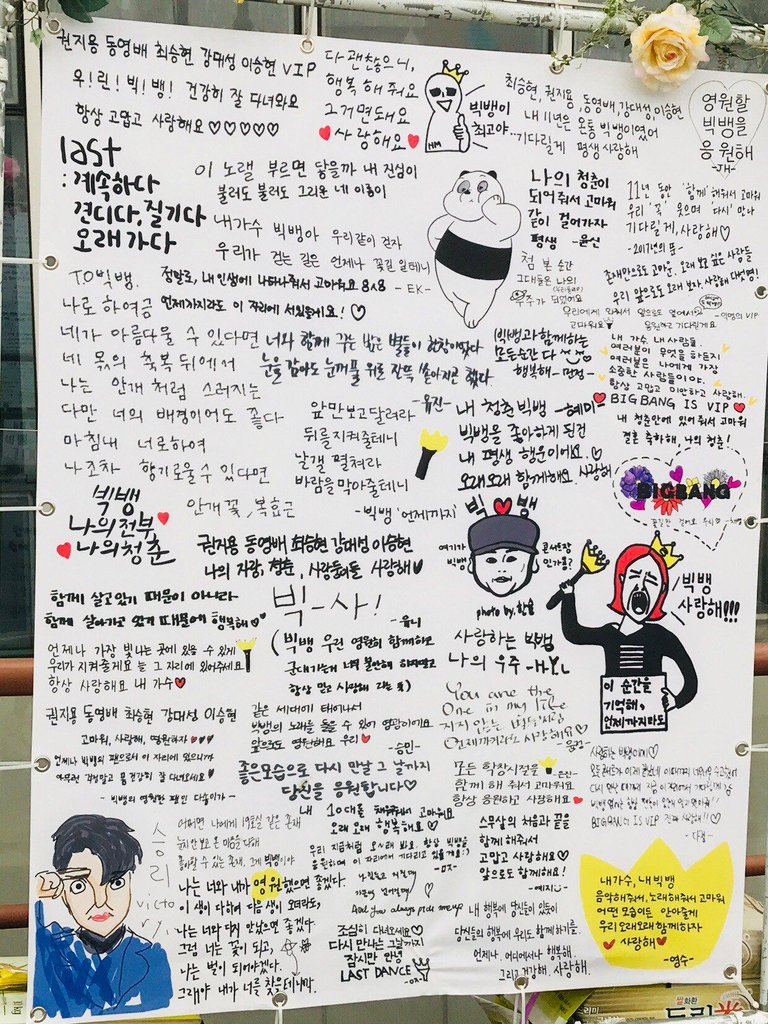 권지용 동영배 최승현 강대성 이승현 VIP
우!린!빅!뱅! 건강히 잘 다녀와요
항상 고맙고 사랑해요♡♡♡♡♡
다 괜찮으니,
행복해 줘요
그거면 돼요
♥사랑해요♥
빅뱅이
최고야..
최승현, 권지용, 동영배, 강대성, 이승현
내 11년은 온통 빅뱅이였어
기다릴게 평생 사랑해
영원할
빅뱅을
응원해
-JH-
last
: 계속하다
견디다, 질기다
오래 가다
이 노랠 부르면 닿을까 내 진심이
불러도 불러도 그리운 네 이름이
내가수 빅뱅아 우리같이 걷자
우리가 걷는 길은 언제나 꽃길 일테니
- EK -
나의 청춘이
되어줘서 고마워
같이 걸어가자
평생 -윤신
11년 동안 '함께'해줘서 고마워
우리 '꽃' 피으면 '다시' 만나
기다릴게, 사랑해♡
-2017년의 뚜-
첫 본 순간
그대들은 나의
우주가 되었어요
존재만으로 고마운, 오래 보고 싶은 사람들
우리 앞으로도 오래 보자 사랑해 대빵영!
TO빅뱅.
정말로, 내 인생에 나타나줘서 고마워요 8ㅅ8
언제까지라도 이 자리에 서있을게요!♡
나로 하여금
네가 아름다울 수 있다면
네 몫의 축복 뒤에서
나는 안개처럼 스러지는
다만 너의 배경이어도 좋다
마침내 너로하여
나조차 향기로울 수 있다면
안개꽃, 복효근
너와 함께 꾸는 밤은 별들이 한창이었다
눈을 감아도 눈꺼풀 위로 잔뜩 쏟아지곤 했다
-유진-
빅뱅과 함께하는
모든순간 다
행복해-민정-
내 가수, 내 사람들.
여러분이 무엇을 하든지
여러분은 나에게 가장
소중한 사람들이야.
항상 고맙고 미안하고 사랑해.
♥BIG BANG IS VIP♥
내 청춘안에 있어 줘서 고마워
결혼 축하해, 나의 청춘!
앞만보고달려라
뒤를지켜줄테니
날갤 펼쳐라
바람을막아줄테니
-빅뱅 '언제까지'
내 청춘 빅뱅 -혜미-
빅뱅을 좋아하게 된건
내 평생 행운이어요♡
오래오래 함께해요 사랑해
BIGBANG
빅뱅
나의전부
♥나의청춘
권지용 동영배 최승현 강대성 이승현
나의 자랑, 청춘, 사랑둥이들 사랑해♥
빅♥뱅
여기가
빅뱅
콘서트장
인가욤?
photo by.한솔
빅뱅
사랑해!!!
이 순간을
기억해,
언제까지라도
함께 살고있기 때문이 아니라
함께 살아가고 있기 때문에 행복해♡
빅-사!
-윤니
(빅뱅 우린 영원히 함께하고
군대가는게 너무 불안해 하지말고
항상 믿고 사랑해
사랑하는 빅뱅
나의 우주 -HYL
언제나 가장 빛나는 곳에 있을 수 있게
우리가 지켜줄게요 늘 그 자리에 있어주세요
항상 사랑해요 내 가수♥
You are the
One in my life
지지 않는 별들처럼
언제까지라도 사랑해요♡
권지용 동영배 최승현 강대성 이승현
고마워, 사랑해, 영원하자♥♥♥
언제나 빅뱅의 팬으로서 이 자리에 있으니까
아무런 걱정말고 몸 건강히 잘 다녀오세요!
- 빅뱅의 영원한 팬인 다솔이가 -
같은 세대에 태어나서
빅뱅의 노래를 들을 수 있어 영광이에요
앞으로도 영원해요 우리♥
-승민-
좋은모습으로 다시 만날 그 날까지
당신을 응원합니다♡
모든 학창시절을
함께 해 줘서 고마워요
항상 응원하고 사랑해요
BIGBANG IS VIP
내 10대를 채워줘서 고마워요
오래 오래 행복해요♡
스무살의 처음과 끝을
함께 해줘서
고맙고 사랑해요♡
앞으로도 함께해요!
-예지-
승리
victory
어쩌면 나에게 19호실 같은 존재
나는 너와 내가 영원했으면 좋겠다.
이 생이 다하여 다음 생이 오더라도,
나는 너와 다시 만났으면 좋겠다
그럼 너는 꽃이 되고,
나는 벌이 되어야겠다.
그래야 내가 너를 찾을테니까.
And you always pick me up
조심히 다녀오세요♡
다시 만나는 그날까지
잠시만 안녕
LAST DANCE
내 행복에 당신들이 있듯이
당신들의 행복에 우리도 함께 하기를.
언제나. 어디에서나 행복해.
그리고 건강해. 사랑해.
내가수, 내빅뱅
음악해줘서, 노래해줘서 고마워
어떤 모습이든 안아줄게
우리 오래오래 함께하자
♥사랑해♥
-영수-
쌀화환